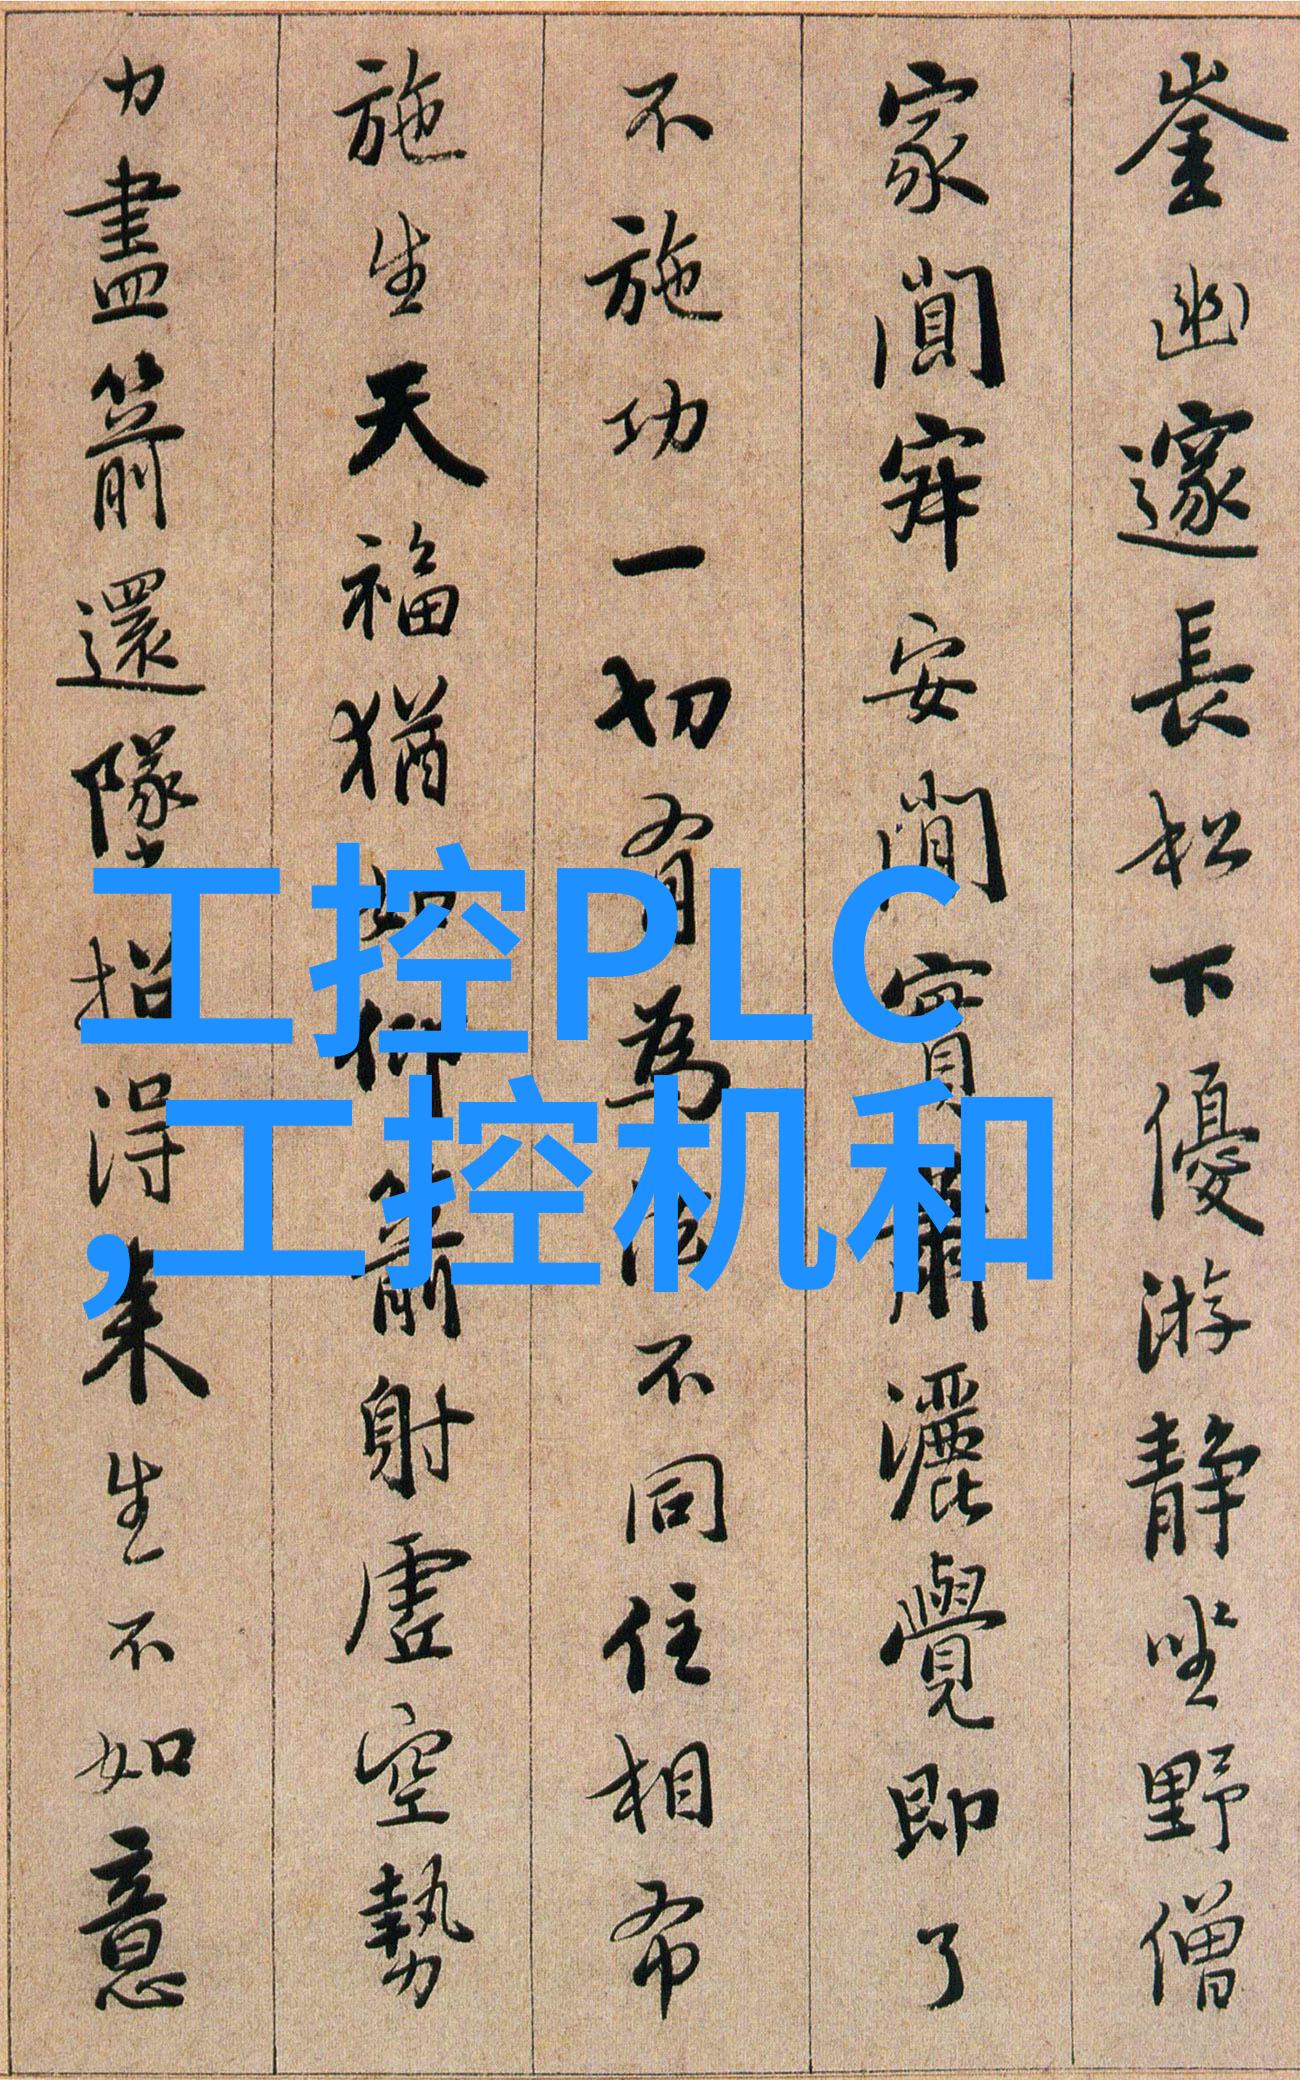 崟幽邃長松下優游靜坐野僧
家閴寂安閑實蕭灑覺即了
不施功一切有為法不同住相布
施生天福猶如仰箭射虛空勢
力盡箭還墜招得来生不如意
工控PLC
,工控机和